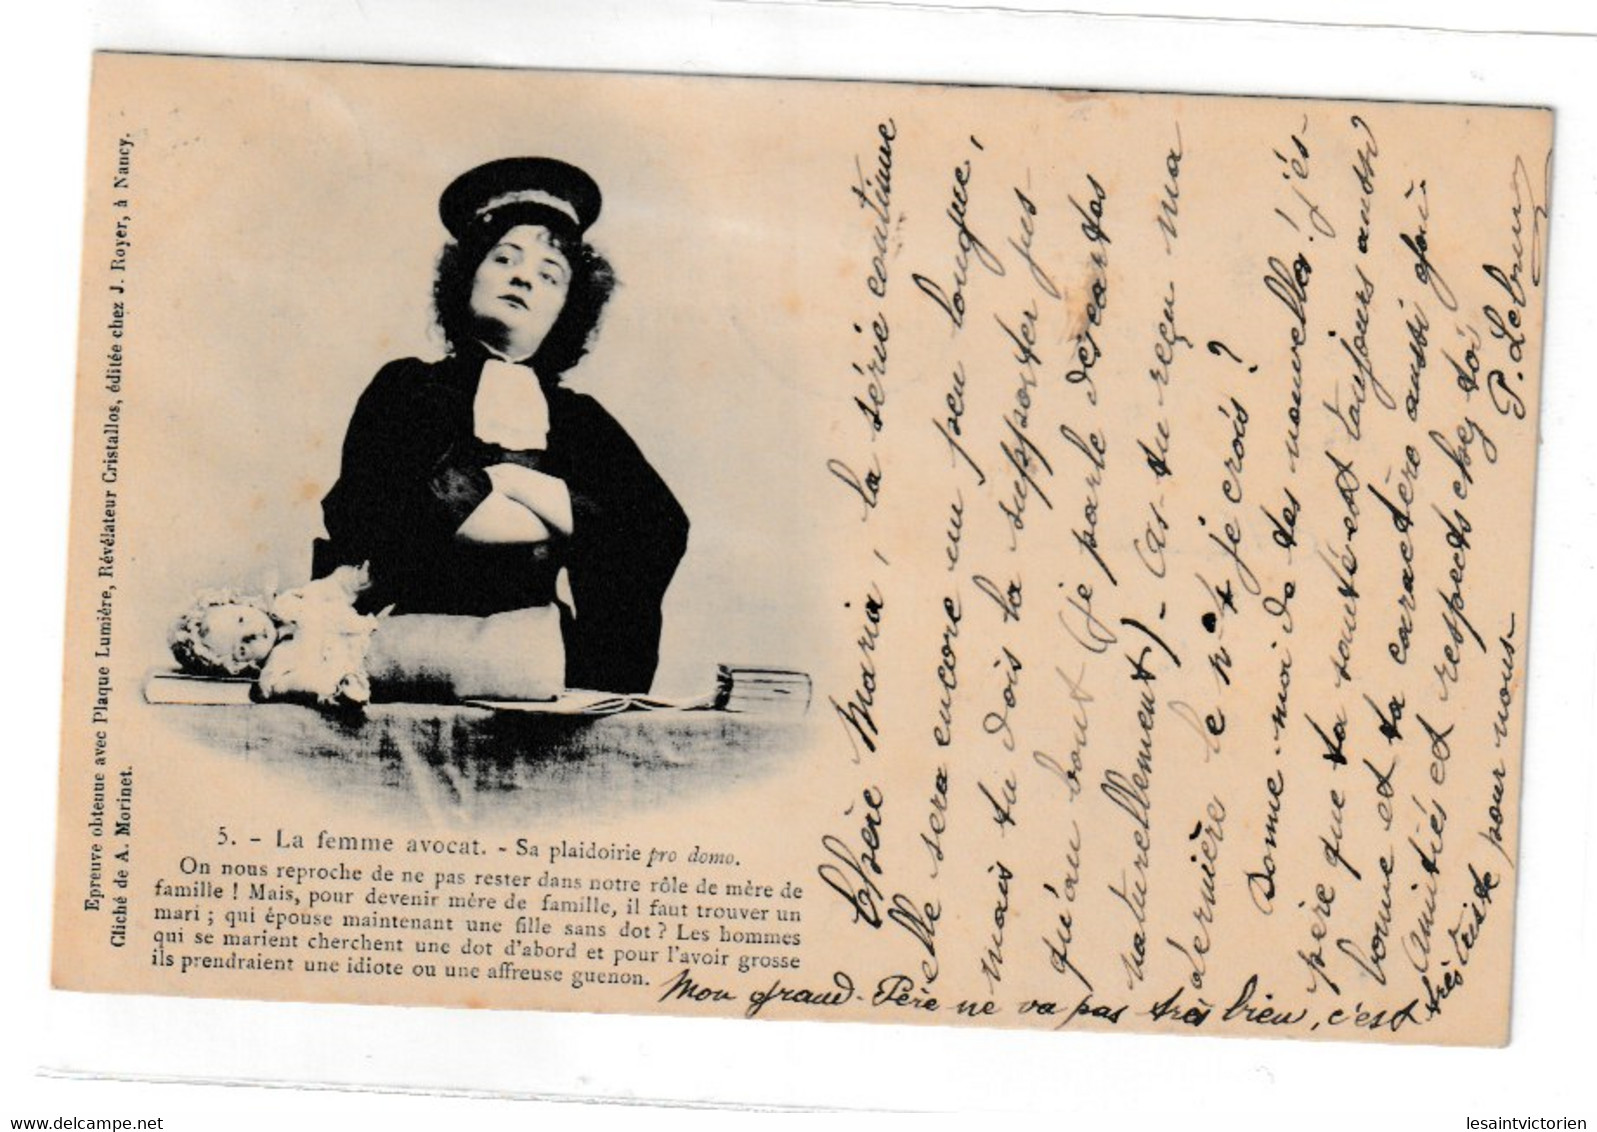 Epreuve obtenue avec Plaque Lumière, Révélateur Cristallos, éditée chez J. Royer, à Nancy.
Cliché de A. Morinet.
5. - La femme avocat. - Sa plaidoirie pro domo.
On nous reproche de ne pas rester dans notre rôle de mère de
famille ! Mais, pour devenir mère de famille, il faut trouver un
mari ; qui épouse maintenant une fille sans dot ? Les hommes
qui se marient cherchent une dot d'abord et pour l'avoir grosse
ils prendraient une idiote ou une affreuse guenon.
Chère Maria, la série continue
elle sera encore un peu longue,
mais tu dois la supporter jus-
qu'au bout (je parle des cartes
naturellement) - As-tu reçu ma
dernière le n° je crois ?
Donne-moi de tes nouvelles ! j'es-
père que ta santé est toujours aussi
bonne et ta caractère aussi gai.
Amitiés et respects chez toi
P. Lebrun
Mon grand-Père ne va pas très bien, c'est
très triste pour nous.
delcampe.net
lesaintvictorien